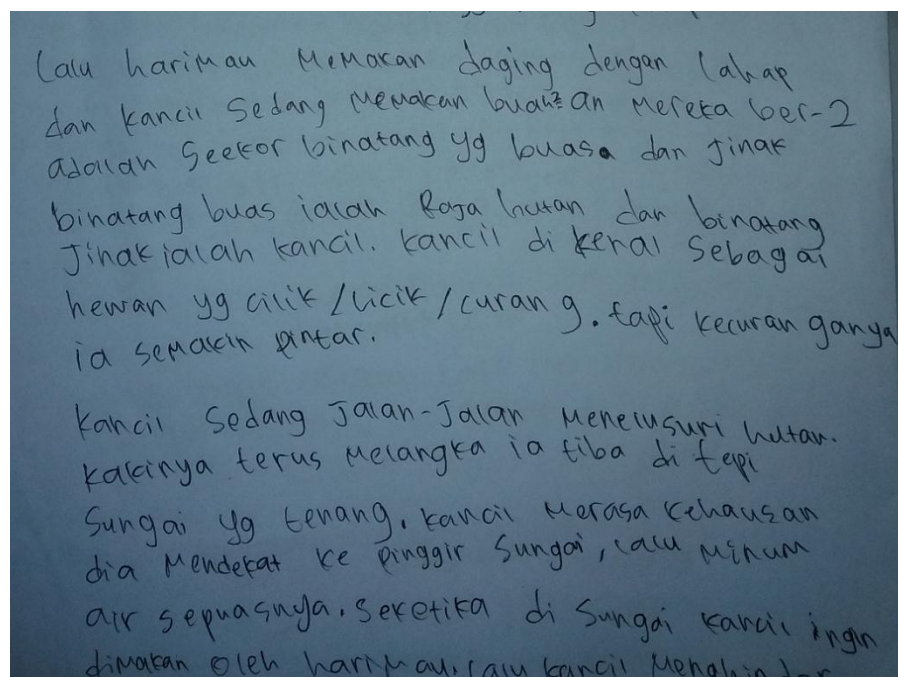 Lalu harimau memakan daging dengan lahap
dan kancil sedang memakan buah²an mereka ber-2
adallah seekor binatang yg buasa dan jinak
binatang buas ialah Raja hutan dan binatang
Jinak ialah kancil. kancil di kenal sebagai
hewan yg cilik/licik/curang. tapi kecuranganya
ia semakin pintar.
kancil sedang Jalan-Jalan menelusuri hutan.
kakinya terus melangka ia tiba di tepi
sungai yg tenang. kancil merasa kehausan
dia mendekat ke pinggir sungai, lalu minum
air sepuasnya. seketika di sungai kancil ingin
dimakan oleh harimau. lalu kancil menghindar